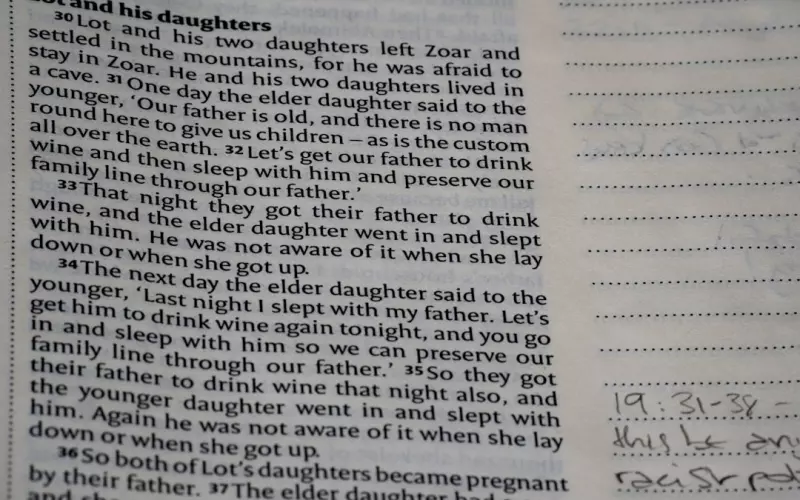 Lot and his daughters
30 Lot and his two daughters left Zoar and
settled in the mountains, for he was afraid to
stay in Zoar. He and his two daughters lived in
a cave. 31 One day the elder daughter said to the
younger, ‘Our father is old, and there is no man
round here to give us children – as is the custom
all over the earth. 32 Let’s get our father to drink
wine and then sleep with him and preserve our
family line through our father.’
33 That night they got their father to drink
wine, and the elder daughter went in and slept
with him. He was not aware of it when she lay
down or when she got up.
34 The next day the elder daughter said to the
younger, ‘Last night I slept with my father. Let’s
get him to drink wine again tonight, and you go
in and sleep with him so we can preserve our
family line through our father.’ 35 So they got
their father to drink wine that night also, and
the younger daughter went in and slept with
him. Again he was not aware of it when she lay
down or when she got up.
36 So both of Lot’s daughters became pregnant
by their father. 37 The elder daughter had
19:31-38 -
this be any
racist